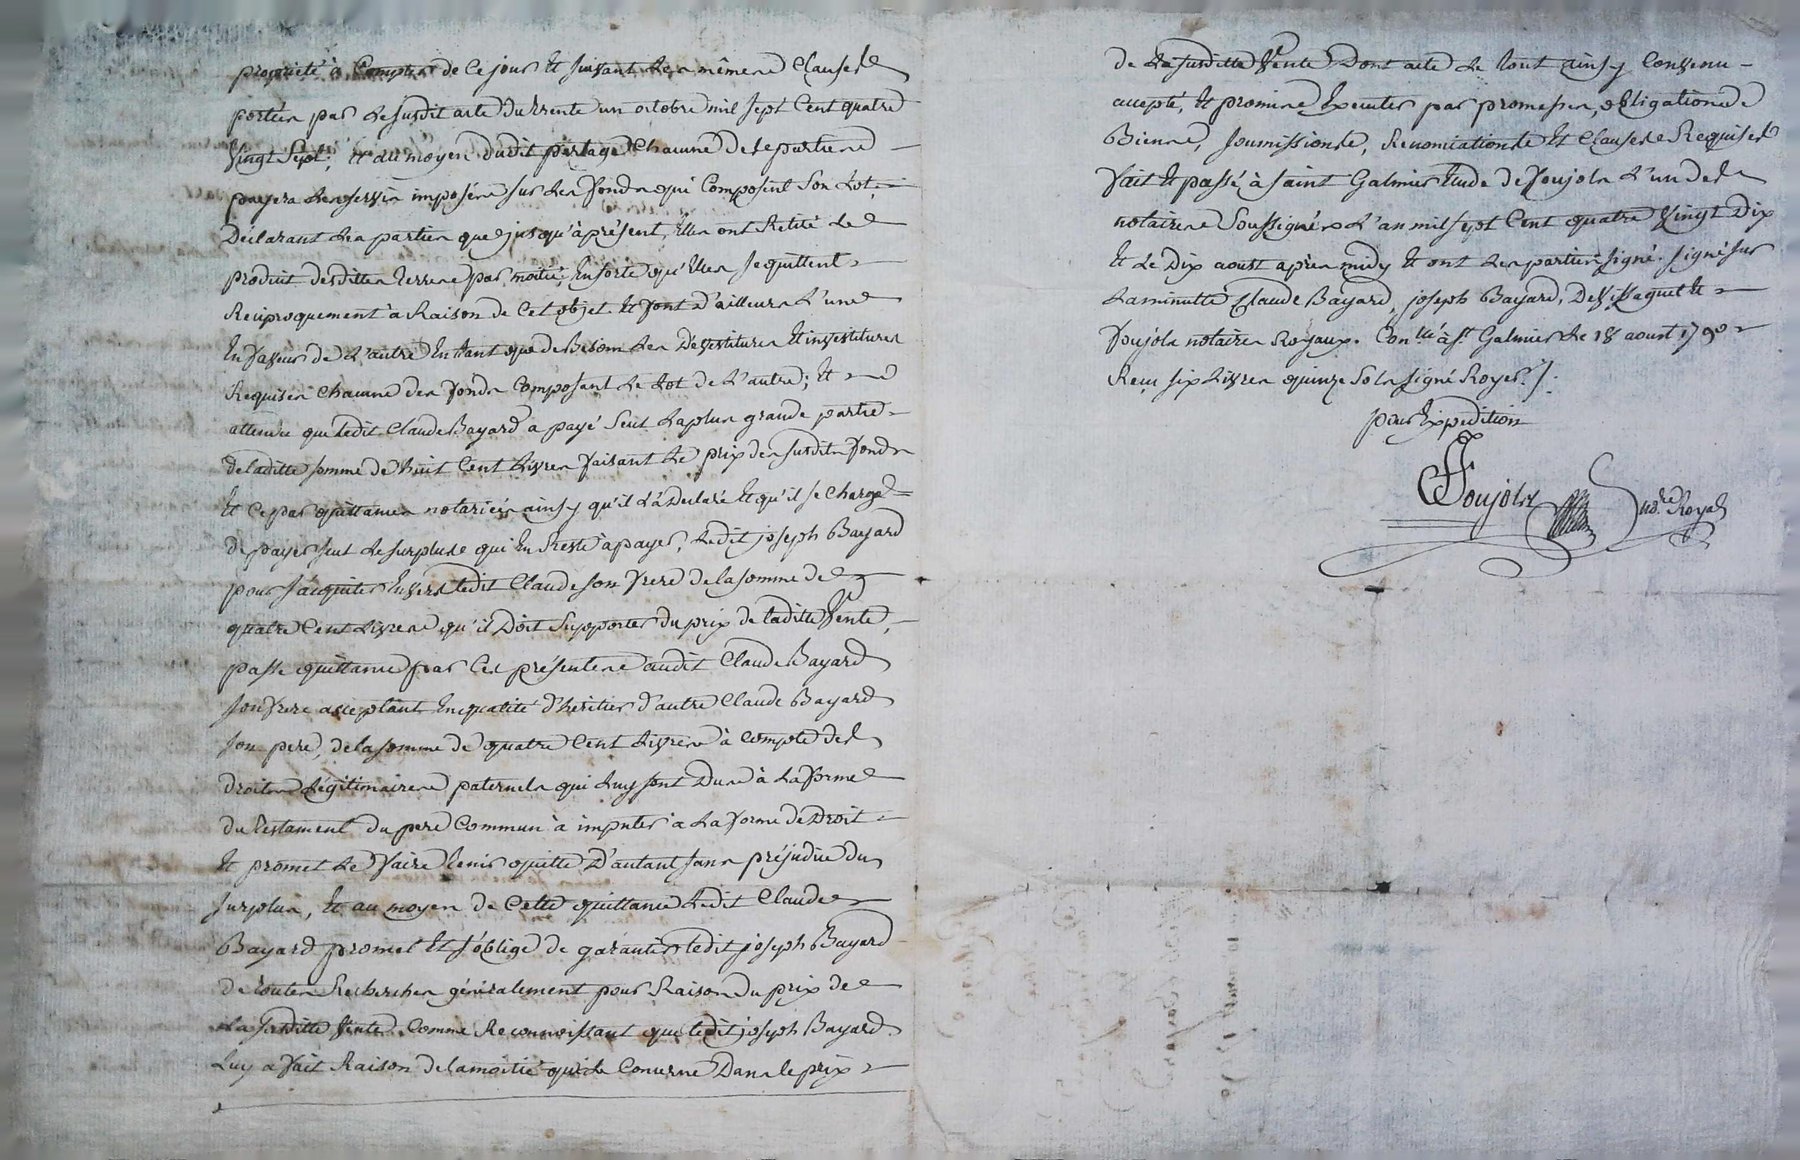 propriété à Compter de Ce jour Et suivant Les mêmes Clauses
portées par Le susdit acte du trente un octobre mil sept Cent quatre
vingt Sept; Et au moyen dudit partage Chacune des parties
payera Les servis imposés sur Les fonds qui Composent Son Lot,
Déclarant Les parties que jusqu'à présent, Elles ont Retiré Le
produit desdittes terres par moitié; Ensorte qu'Elles se quittent
Reciproquement à Raison de Cet objet. Et font d'ailleurs L'une
En faveur de L'autre En tant que de Besoin Les Devestitures Et investitures
Requises Chacune des fonds Composant Le Lot de L'autre; Et
attendu que ledit Claude Bayard a payé Seul La plus grande partie
de laditte somme de huit Cent Livres faisant Le prix des susdits fonds
Et Ce par quittances notariées ainsy qu'il L'a Déclaré Et qu'il se Charge
de payer seul Le surplus qui En Reste à payer, Ledit joseph Bayard
pour s'acquiter Envers ledit Claude son frere de la somme de
quatre Cent Livres qu'il Doit Supporter du prix de laditte Vente,
passe quittance par Ces présentes audit Claude Bayard
son frere acceptant En qualité d'héritier d'autre Claude Bayard
son pere, de la somme de quatre Cent Livres à Compte des
droits Légitimaires paternels qui Luy sont Dus à La forme
du testament du pere Commun à imputer à La forme de Droit
Et promet Le faire tenir quitte D'autant sans préjudice du
surplus, Et au moyen de Cette quittance Ledit Claude
Bayard promet Et s'oblige de garantir ledit joseph Bayard
de toutes Recherches généralement pour Raison du prix de
La susditte Vente Comme Reconnoissant que ledit joseph Bayard
Luy a fait Raison de la moitié qui Le Concerne Dans le prix
de La susditte Vente Dont acte Le tout ainsy Convenu
accepté, Et promis Executer par promesses, obligations de
Biens, soumissions, Renonciations Et Clauses Requises
fait Et passé à Saint Galmier Etude de foujols L'un des
notaires Soussignés L'an mil sept Cent quatre vingt Dix
Et Le Dix aoust après midy Et ont Les parties signé. signé sur
La minutte Claude Bayard, joseph Bayard, Et
foujols notaires Royaux. Con.llé à S.t Galmier Le 18 aoust 1790
Reçu six Livres quinze Sols signé Royer./.
pour Expedition
Foujols
no.re Royal